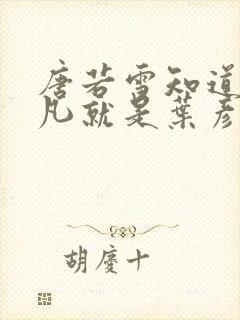 唐若雪知道
凡就是葉彥
胡慶十